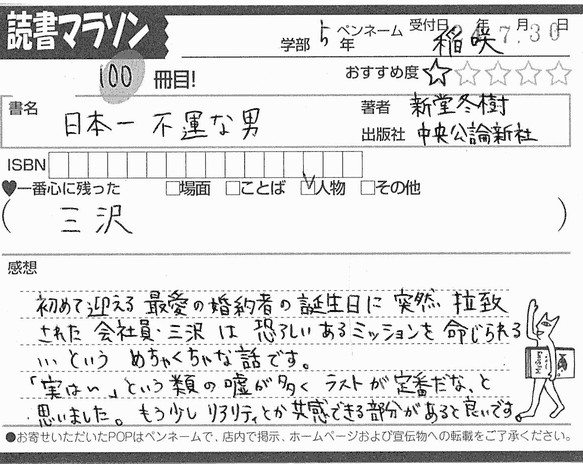 読書マラソン
学部 5年 ペンネーム 稲咲 受付日 年7月30日
100 冊目!
おすすめ度 ★☆☆☆☆
書名 日本一不運な男
著者 新堂冬樹
出版社 中央公論新社
ISBN
♥一番心に残った □場面 □ことば ☑人物 □その他
( 三沢 )
感想
初めて迎える最愛の婚約者の誕生日に突然、拉致
された会社員・三沢は恐ろしいあるミッションを命じられる
…という めちゃくちゃな話です。
「実は…」という類の嘘が多く ラストが定番だな、と
思いました。もう少しリアリティとか共感できる部分があると良いです。
●お寄せいただいたPOPはペンネームで、店内で掲示、ホームページおよび宣伝物への転載をご了承ください。